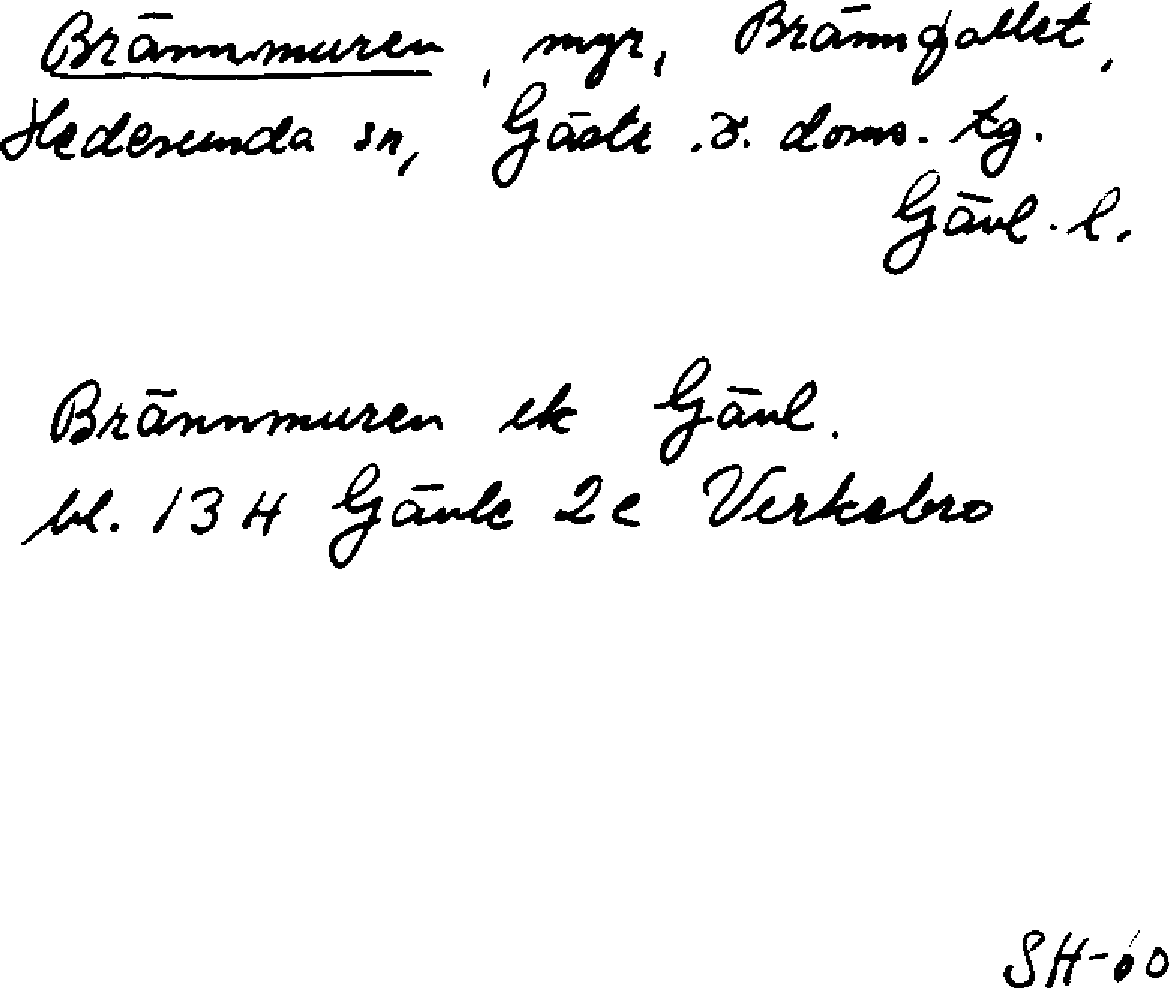 Brännmuren, myr, Brännfallet,
Hedesunda sn, Gästr. ö. doms. tg.
Gävl. l.
Brännmuren ek Gävl.
bl. 13 H Gävle 2c Verkebro
SH-60